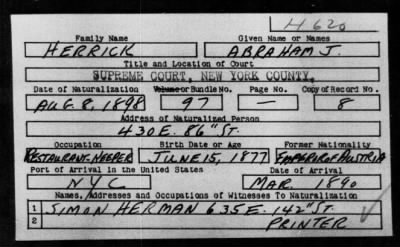 H 620
Family Name Given Name or Names
HERRICK ABRAHAM J.
Title and Location of Court
SUPREME COURT, NEW YORK COUNTY.
Date of Naturalization Volume or Bundle No. Page No. Copy of Record No.
AUG. 8, 1898 97 — 8
Address of Naturalized Person
430 E. 86" ST.
Occupation Birth Date or Age Former Nationality
RESTAURANT KEEPER JUNE 15, 1877 EMPEROR OF AUSTRIA
Port of Arrival in the United States Date of Arrival
NYC MAR. 1890
Names, Addresses and Occupations of Witnesses To Naturalization
1 SIMON HERMAN 635 E. 142" ST.
2 PRINTER